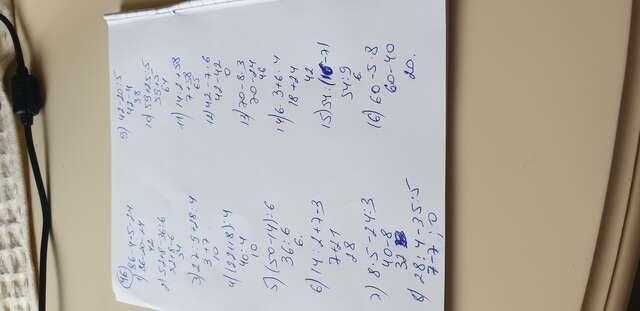 46
1) 86-4·5-24
86-20-24
42
2) 52+8-36:6
52+8-6
54
3) 27:9+28:4
3+7
10
4) (22+18):4
40:4
10
5) (50-14):6
36:6
6.
6) 14:2+7·3
7+21
28
7) 8·5-24:3
40-8
32
8) 28:4-35:5
7-7; 0
9) 42-20:5
42-4
38
10) 59+25:5
59+5
64
11) 14:2+58
7+58
65
12) 42-7·6
42-42
0
13) 70-8·3
70-24
46
14) 6·3+6·4
18+24
42
15) 54:(16-7)
54:9
6.
16) 60-5·8
60-40
20.